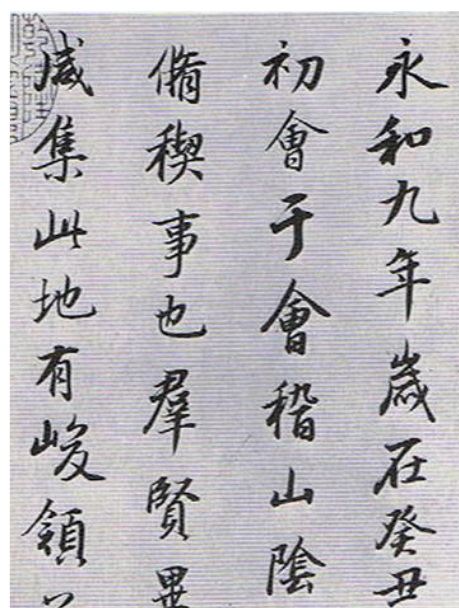 永和九年歲在癸丑
初會于會稽山陰
脩稧事也羣賢畢
咸集此地有峻領